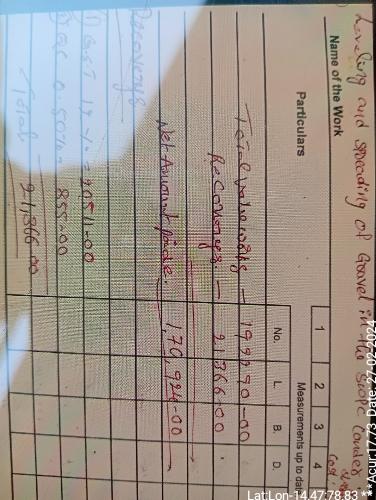 Leveling and spreading of Gravel in the scope Complex
Name of the Work
Particulars
1 2 3 4
Measurements up to dat
No. L. B. D.
Total value work - 192290-00
Recoverys. - 21366-00
Net Amount Paide. 1,70,924-00
Recoverys
1) GST 12% = 20511-00
855-00
Total 21366-00
Lat:Lon-14 47:78.83 ** Agur 1773 Date: 27-02-2024